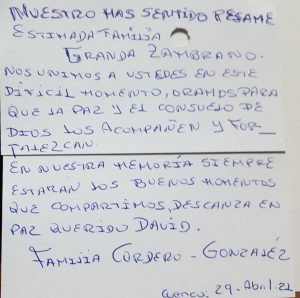 NUESTRO MAS SENTIDO PESAME
ESTIMADA FAMILIA
GRANDA ZAMBRANO.
NOS UNIMOS A USTEDES EN ESTE
DIFICIL MOMENTO, ORAMOS PARA
QUE LA PAZ Y EL CONSUELO DE
DIOS LOS ACOMPAÑEN Y FOR_
TALEZCAN.
EN NUESTRA MEMORÍA SIEMPRE
ESTARAN LOS BUENOS MOMENTOS
QUE COMPARTIMOS, DESCANZA EN
PAZ QUERIDO DAVID.
FAMILIA CORDERO - GONZALÉZ
Cuenca, 29. Abril. 21